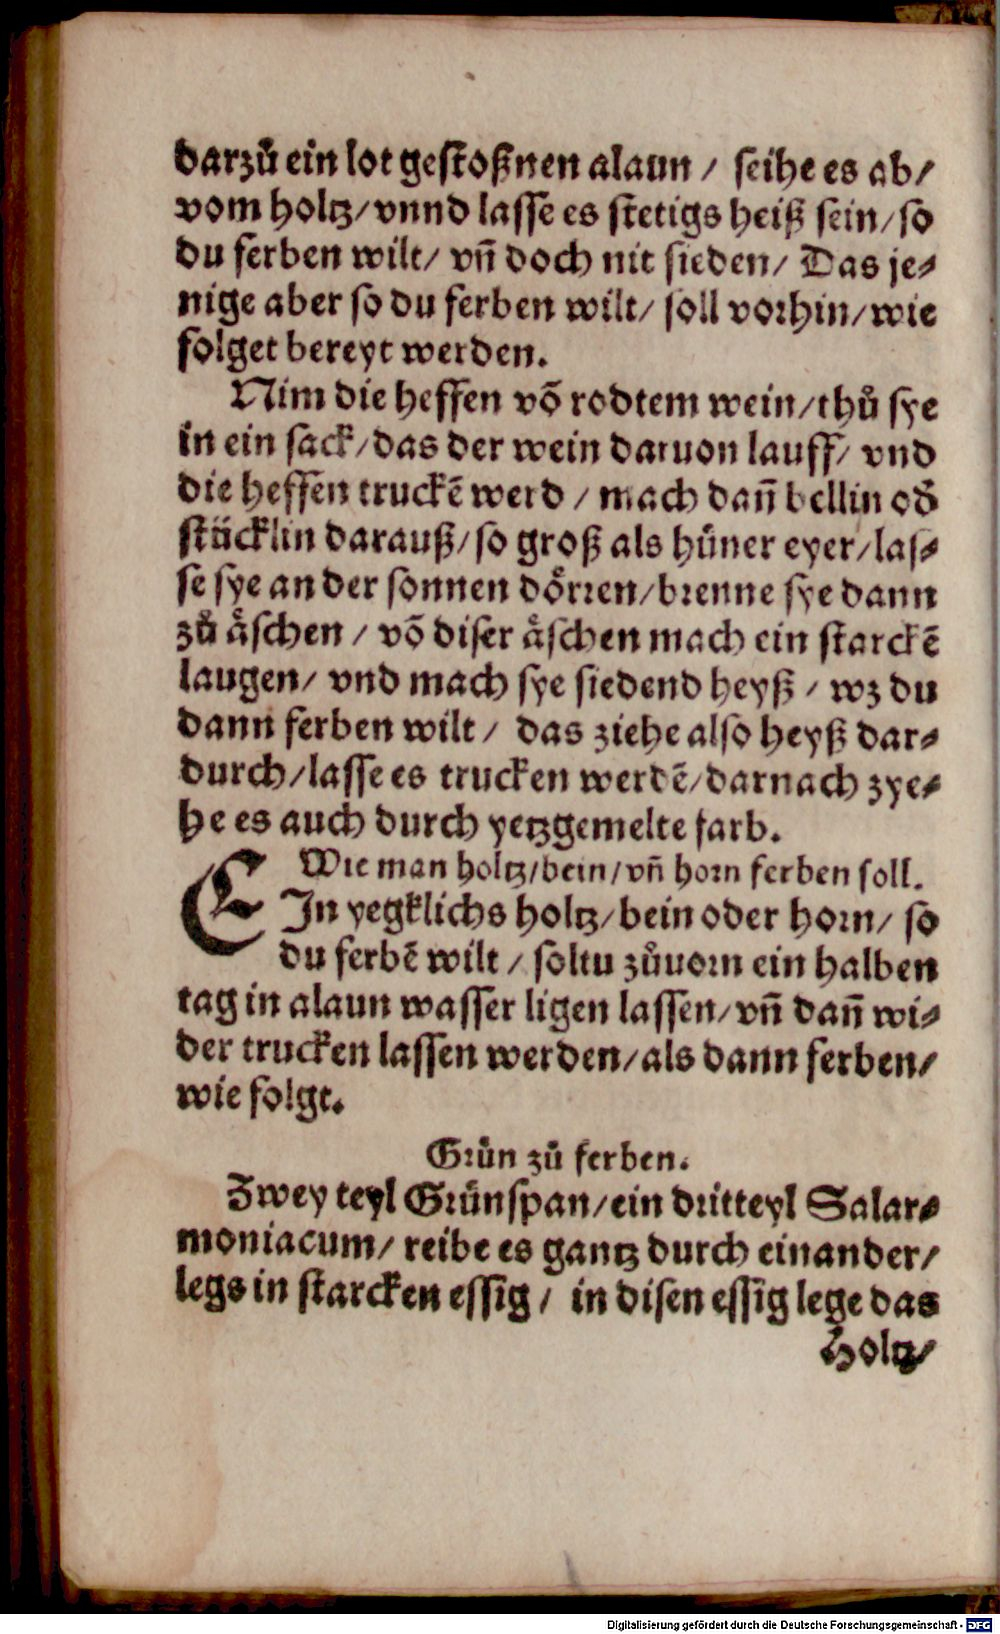 darzů ein lot gestoßnen alaun / seihe es ab/
vom holtz/vnnd lasse es stetigs heiß sein/so
du ferben wilt/ vñ doch nit sieden/ Das je⸗
nige aber so du ferben wilt/ soll vorhin/wie
folget bereyt werden.
Nim die heffen võ rodtem wein/thů sye
in ein sack/das der wein daruon lauff/ vnd
die heffen truckẽ werd / mach dañ bellin od̕
stücklin darauß/so groß als hüner eyer/las⸗
se sye an der sonnen dörren/brenne sye dann
zů äschen / võ diser äschen mach ein starckẽ
laugen/ vnd mach sye siedend heyß / wz du
dann ferben wilt / das ziehe also heyß dar⸗
durch/lasse es trucken werdẽ/darnach zye⸗
he es auch durch yetzgemelte farb.
Wie man holtz/bein/vñ horn ferben soll.
EJn yegklichs holtz/bein oder horn/ so
du ferbẽ wilt / soltu zůuorn ein halben
tag in alaun wasser ligen lassen/vñ dañ wi⸗
der trucken lassen werden/als dann ferben/
wie folgt.
Grün zů ferben.
Zwey teyl Grünspan/ein dritteyl Salar⸗
moniacum/ reibe es gantz durch einander/
legs in starcken essig / in disen essig lege das
Holtz/
Digitalisierung gefördert durch die Deutsche Forschungsgemeinschaft - DFG